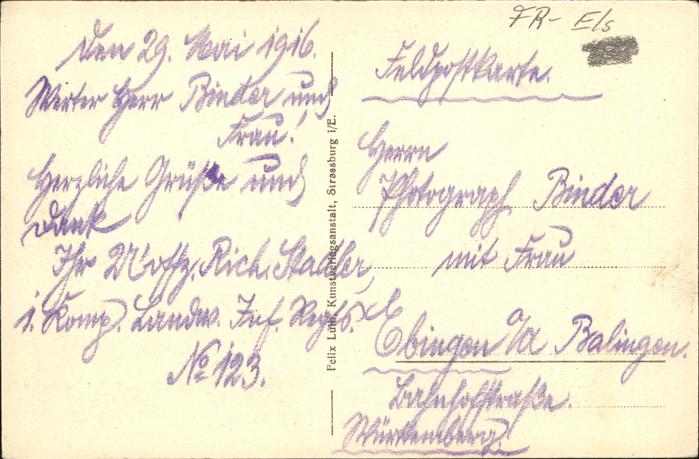 FR- Els
Den 29. Mai 1916.
Werter Herr Binder und
Frau!
Herzliche Grüße und
Dank
Ihr Uoffz. Rich. Stadler,
1. Komp. Landw. Inf. Regts.
No 123.
Felix Luib, Kunstverlagsanstalt, Strassburg i/E.
Feldpostkarte.
Herrn
Photograph Binder
mit Frau
Ebingen O/A Balingen.
Bahnhofstraße.
Württemberg.